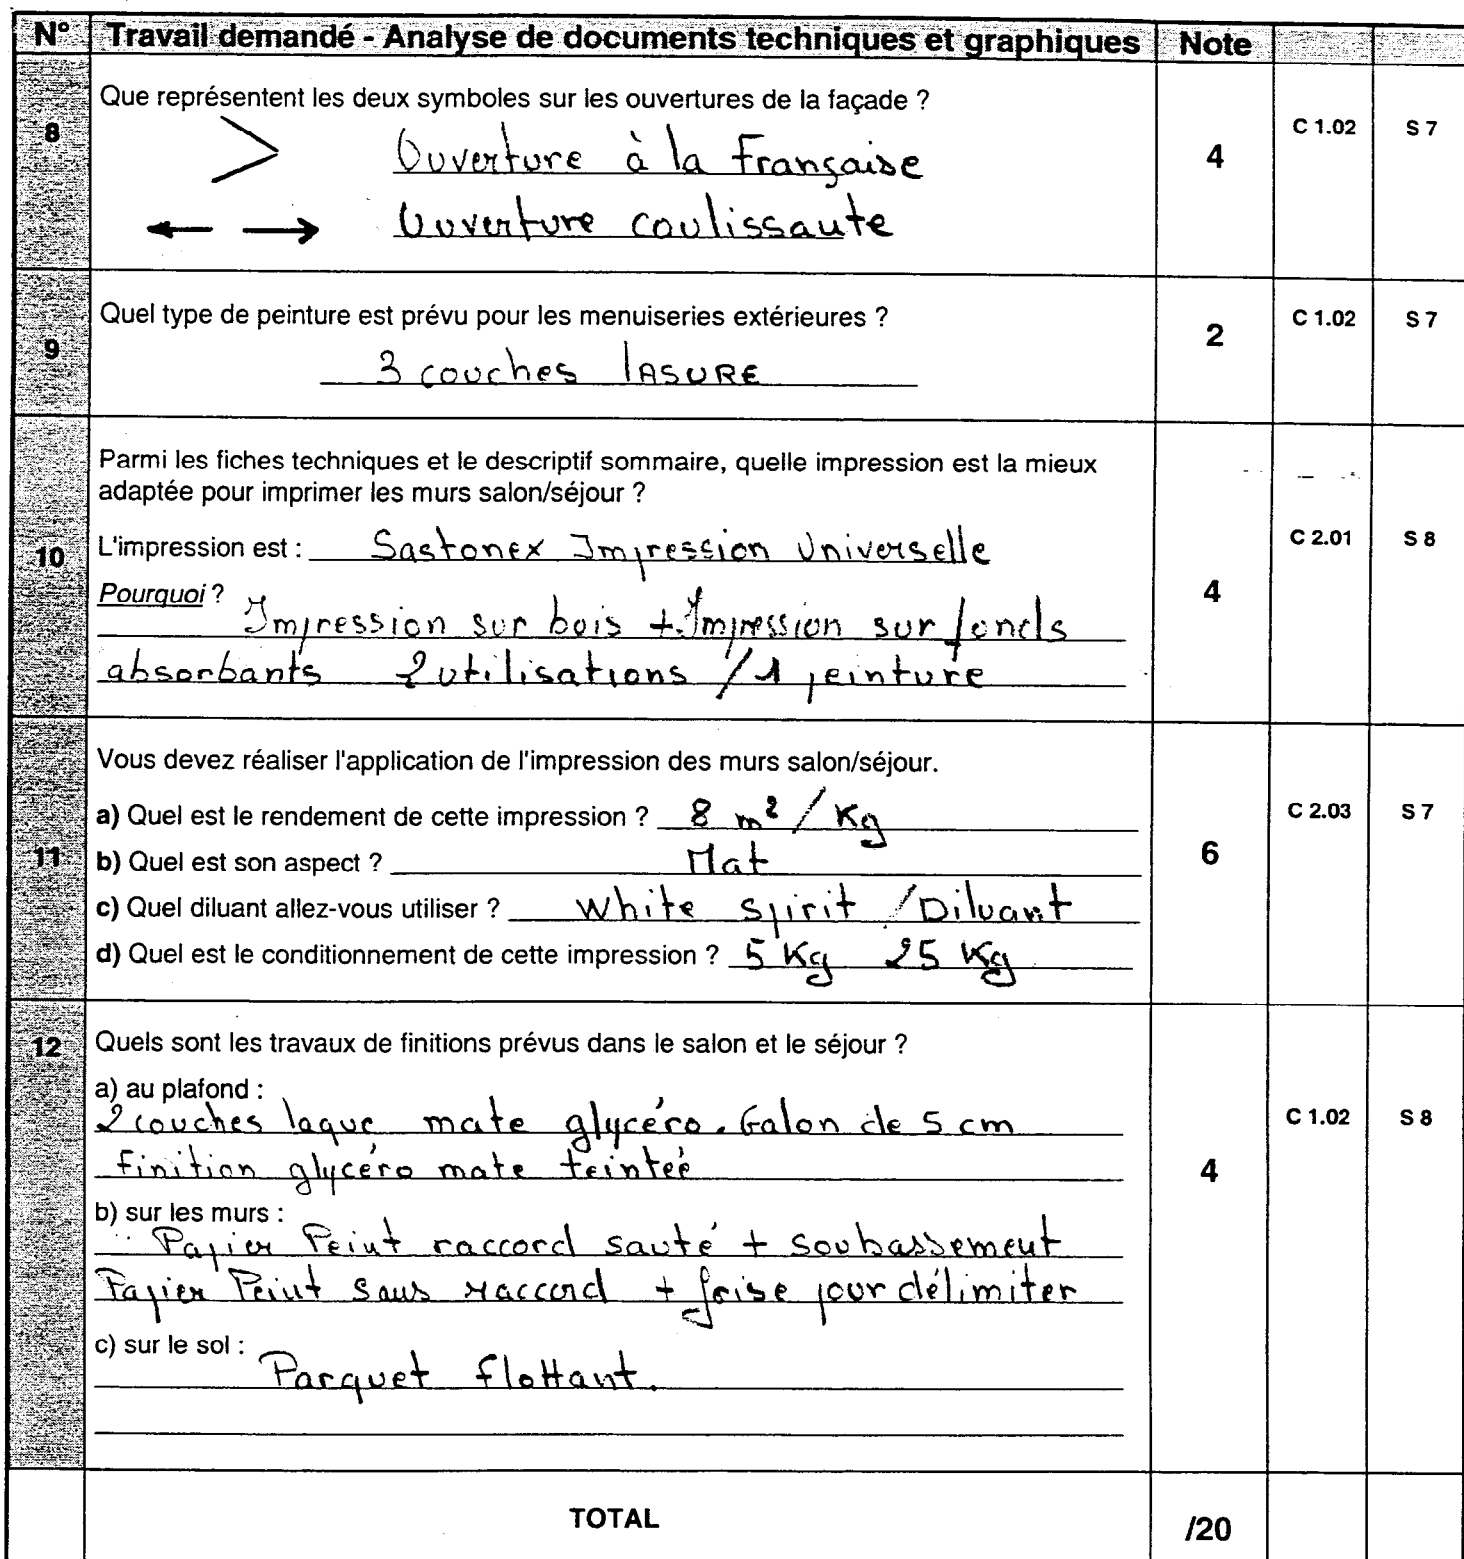 N° Travail demandé - Analyse de documents techniques et graphiques Note
8 Que représentent les deux symboles sur les ouvertures de la façade ? 4 C 1.02 S 7
Ouverture à la Française
Ouverture coulissante
9 Quel type de peinture est prévu pour les menuiseries extérieures ? 2 C 1.02 S 7
3 couches lASURE
Parmi les fiches techniques et le descriptif sommaire, quelle impression est la mieux
adaptée pour imprimer les murs salon/séjour ?
10 L'impression est : Sastonex Impression Universelle 4 C 2.01 S 8
Pourquoi ?
Impression sur bois + Impression sur fonds
absorbants 2 utilisations / 1 peinture
Vous devez réaliser l'application de l'impression des murs salon/séjour.
a) Quel est le rendement de cette impression ? 8 m² / Kg C 2.03 S 7
11 b) Quel est son aspect ? Mat 6
c) Quel diluant allez-vous utiliser ? White Spirit / Diluant
d) Quel est le conditionnement de cette impression ? 5 Kg 25 Kg
12 Quels sont les travaux de finitions prévus dans le salon et le séjour ?
a) au plafond :
2 couches laque mate glycéro. Galon de 5 cm C 1.02 S 8
finition glycéro mate teintée 4
b) sur les murs :
Papier Peint raccord sauté + soubassement
Papier Peint sans raccord + frise pour délimiter
c) sur le sol :
Parquet flottant.
TOTAL /20